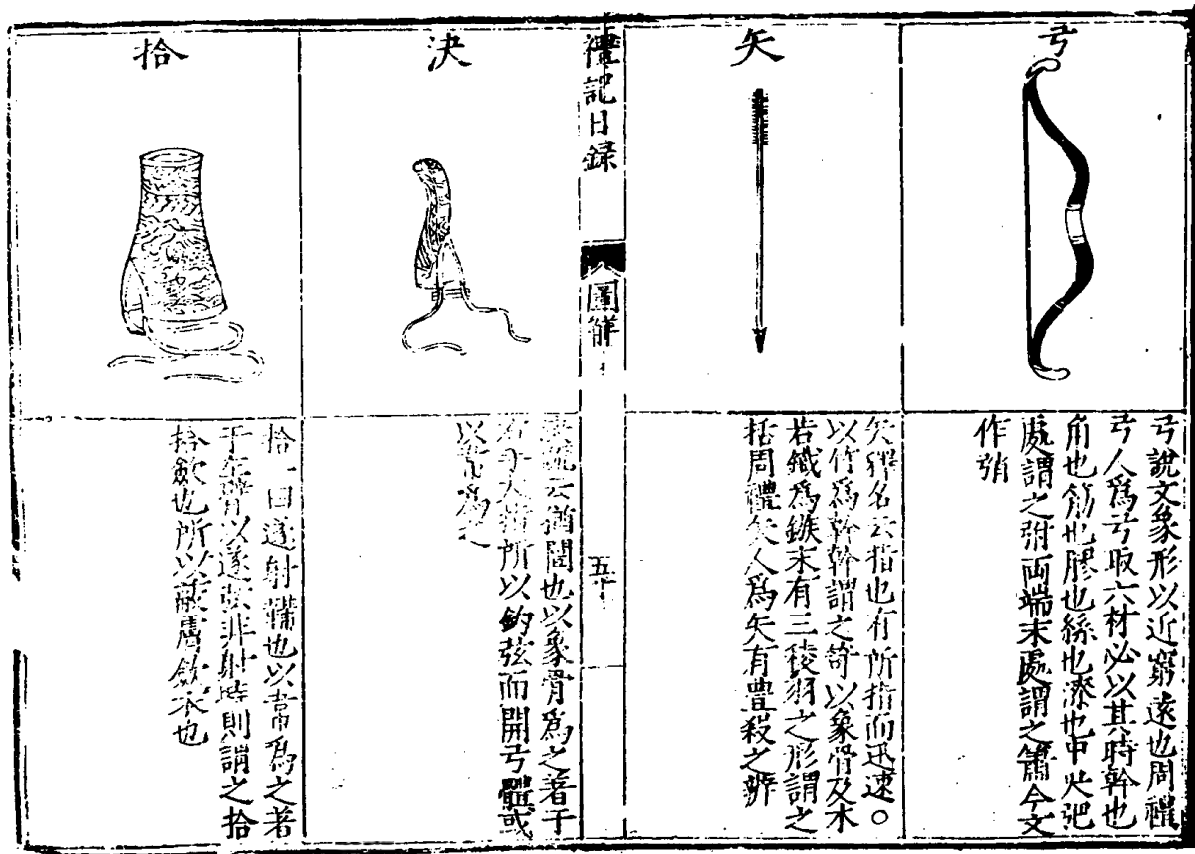 弓
弓說文象形以近窮遠也周禮
弓人爲弓取六材必以其時幹也
角也筋也膠也絲也漆也中央弝
處謂之弣両端末處謂之簫今文
作弰
矢
矢釋名云指也有所指而迅速○
以竹爲幹幹謂之笴以象骨及木
若鐵爲鏃末有三稜羽之形謂之
括周禮矢人爲矢有豊殺之辨
禮記日録
圖解
五十
決
決說云猶闓也以象骨爲之著于
右手大指所以鈎弦而開弓體或
以常爲之
拾
拾一曰遂射鞲也以韋爲之著
于左臂以遂弦非射時則謂之拾
拾斂也所以蔽膚斂衣也